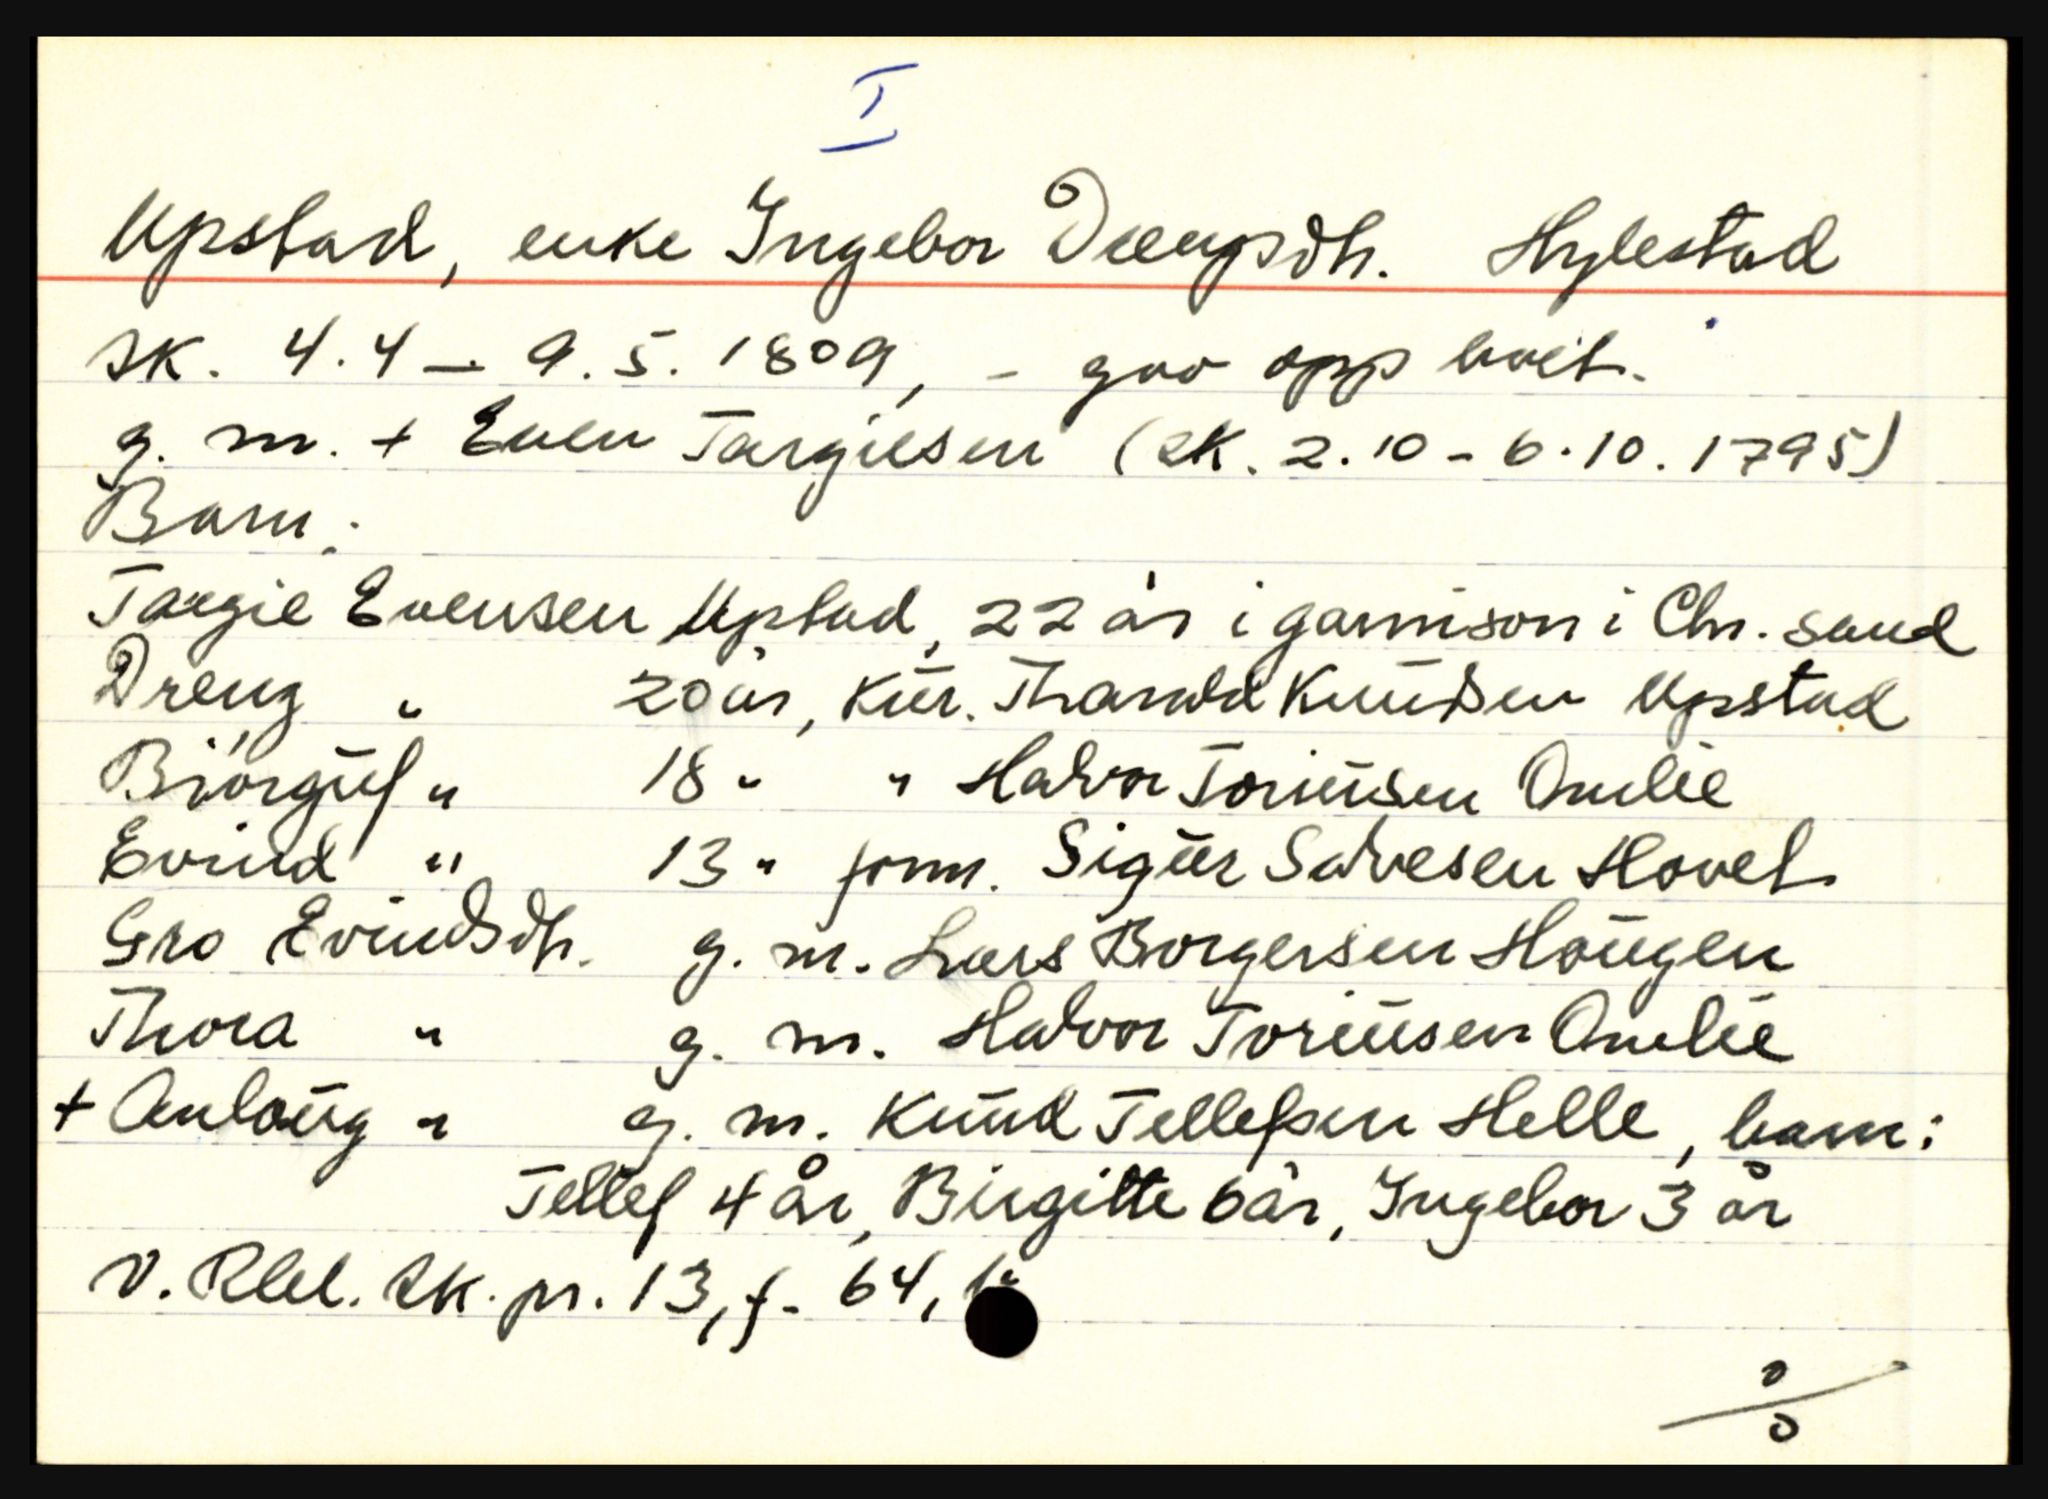 I
Upstad, enke Ingebor Drengsdtr. Hylestad
sk. 4.4 - 9.5. 1809, - gav opp boet.
g. m. + Even Targiesen (sk. 2.10 - 6.10. 1795)
Barn:
Targie Evensen Upstad, 22 år i garnison i Chr. sand
Dreng " 20 år, kur. Tharald Knudsen Upstad
Biørguf " 18 " " Halvor Toriusen Omlie
Evind " 13 " form. Sigur Salvesen Hovet
Gro Evindsdtr. g. m. Lars Borgersen Hougen
Thora " g. m. Halvor Toriusen Omlie
+ Anloug " g. m. Knud Tellefsen Helle, barn:
Tellef 4 år, Birgitte 6 år, Ingebor 3 år
V. Rbd. sk. pr. 13, f. 64, b